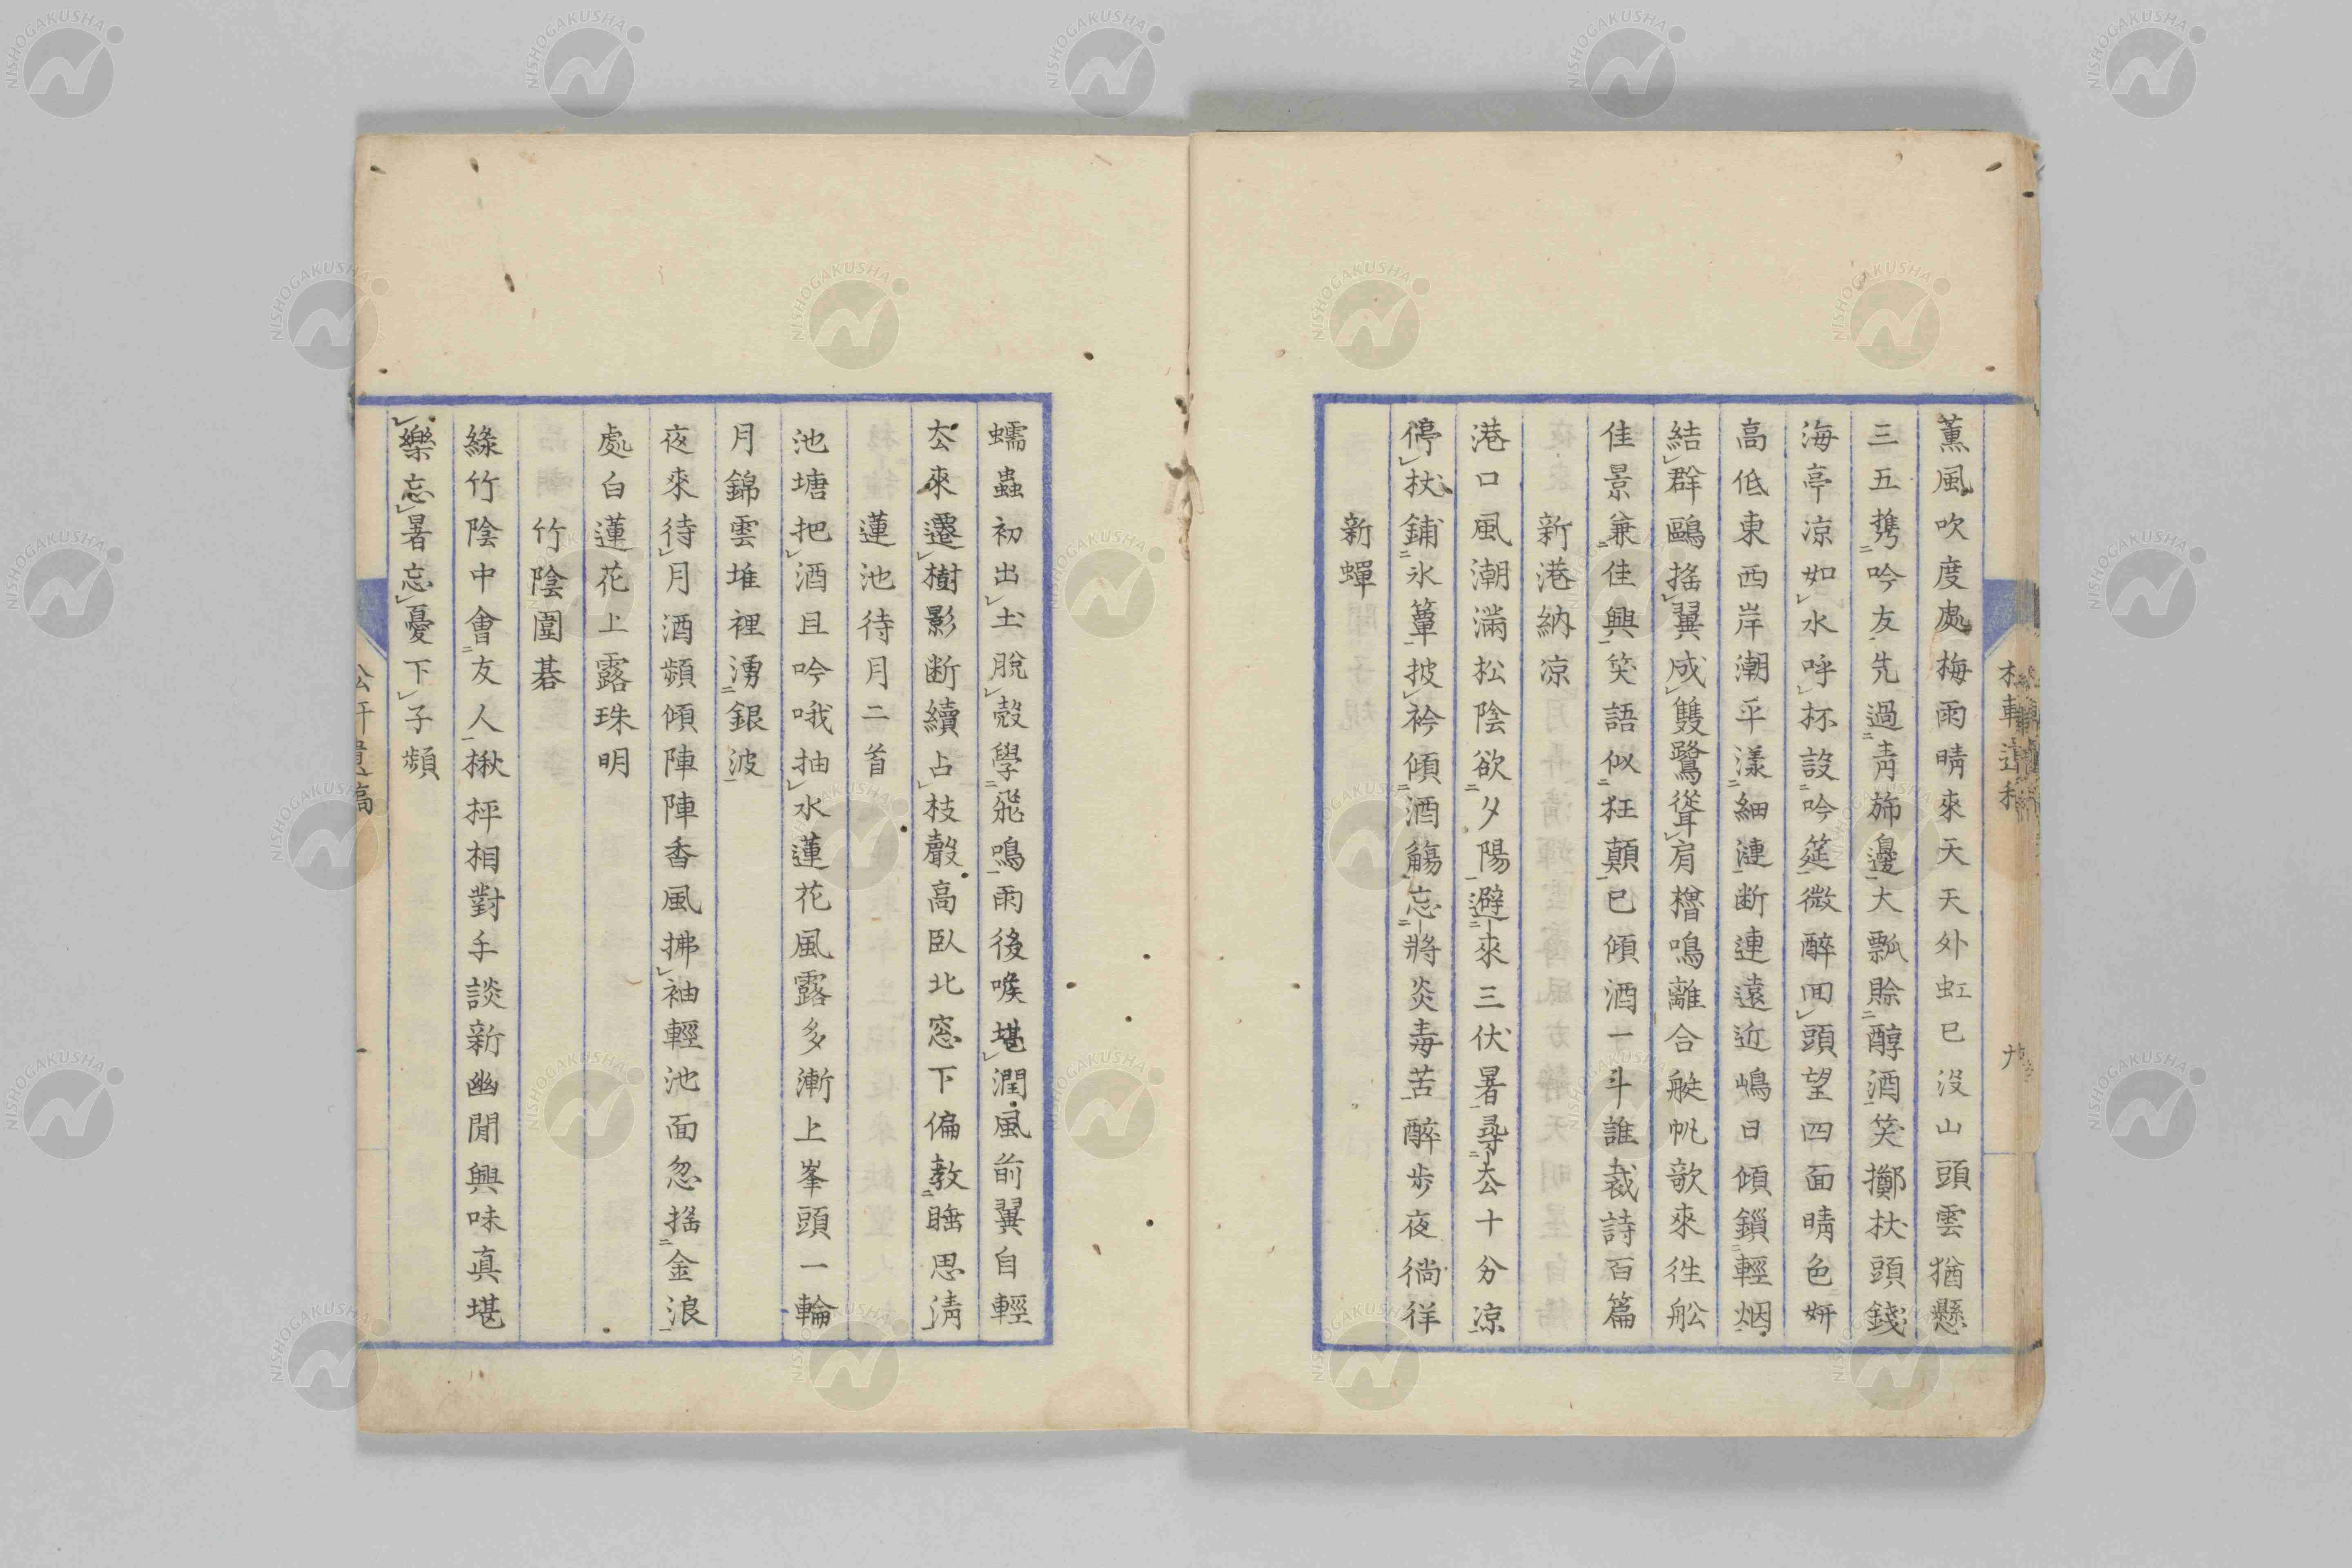 薫風吹度處梅雨晴來天天外虹已沒山頭雲猶懸
三五携吟友先過靑旆邊大瓢賒醇酒笑擲杖頭錢
海亭凉如水呼杯設吟筵微醉囬頭望四面晴色妍
高低東西岸潮平漾細漣断連遠近嶋日傾鎖輕烟
結群鷗搖翼成雙鷺聳肩櫓鳴離合艇帆歌來徃舩
佳景兼佳興笑語似狂顛已傾酒一斗誰裁詩百篇
新港納凉
港口風潮滿松陰欲夕陽避來三伏暑尋去十分凉
停杖鋪氷簟披衿傾酒觴忘將炎毒苦醉步夜徜徉
新蟬
蠕蟲初出土脫殼學飛鳴雨後喉堪潤風前翼自輕
去來遷樹影断續占枝聲高臥北窓下偏教睡思淸
蓮池待月二首
池塘把酒且吟哦抽水蓮花風露多漸上峯頭一輪
月錦雲堆裡湧銀波
夜來待月酒頻傾陣陣香風拂袖輕池面忽搖金浪
處白蓮花上露珠明
竹陰圍碁
綠竹陰中會友人楸枰相對手談新幽閒興味真堪
樂忘暑忘憂下子頻